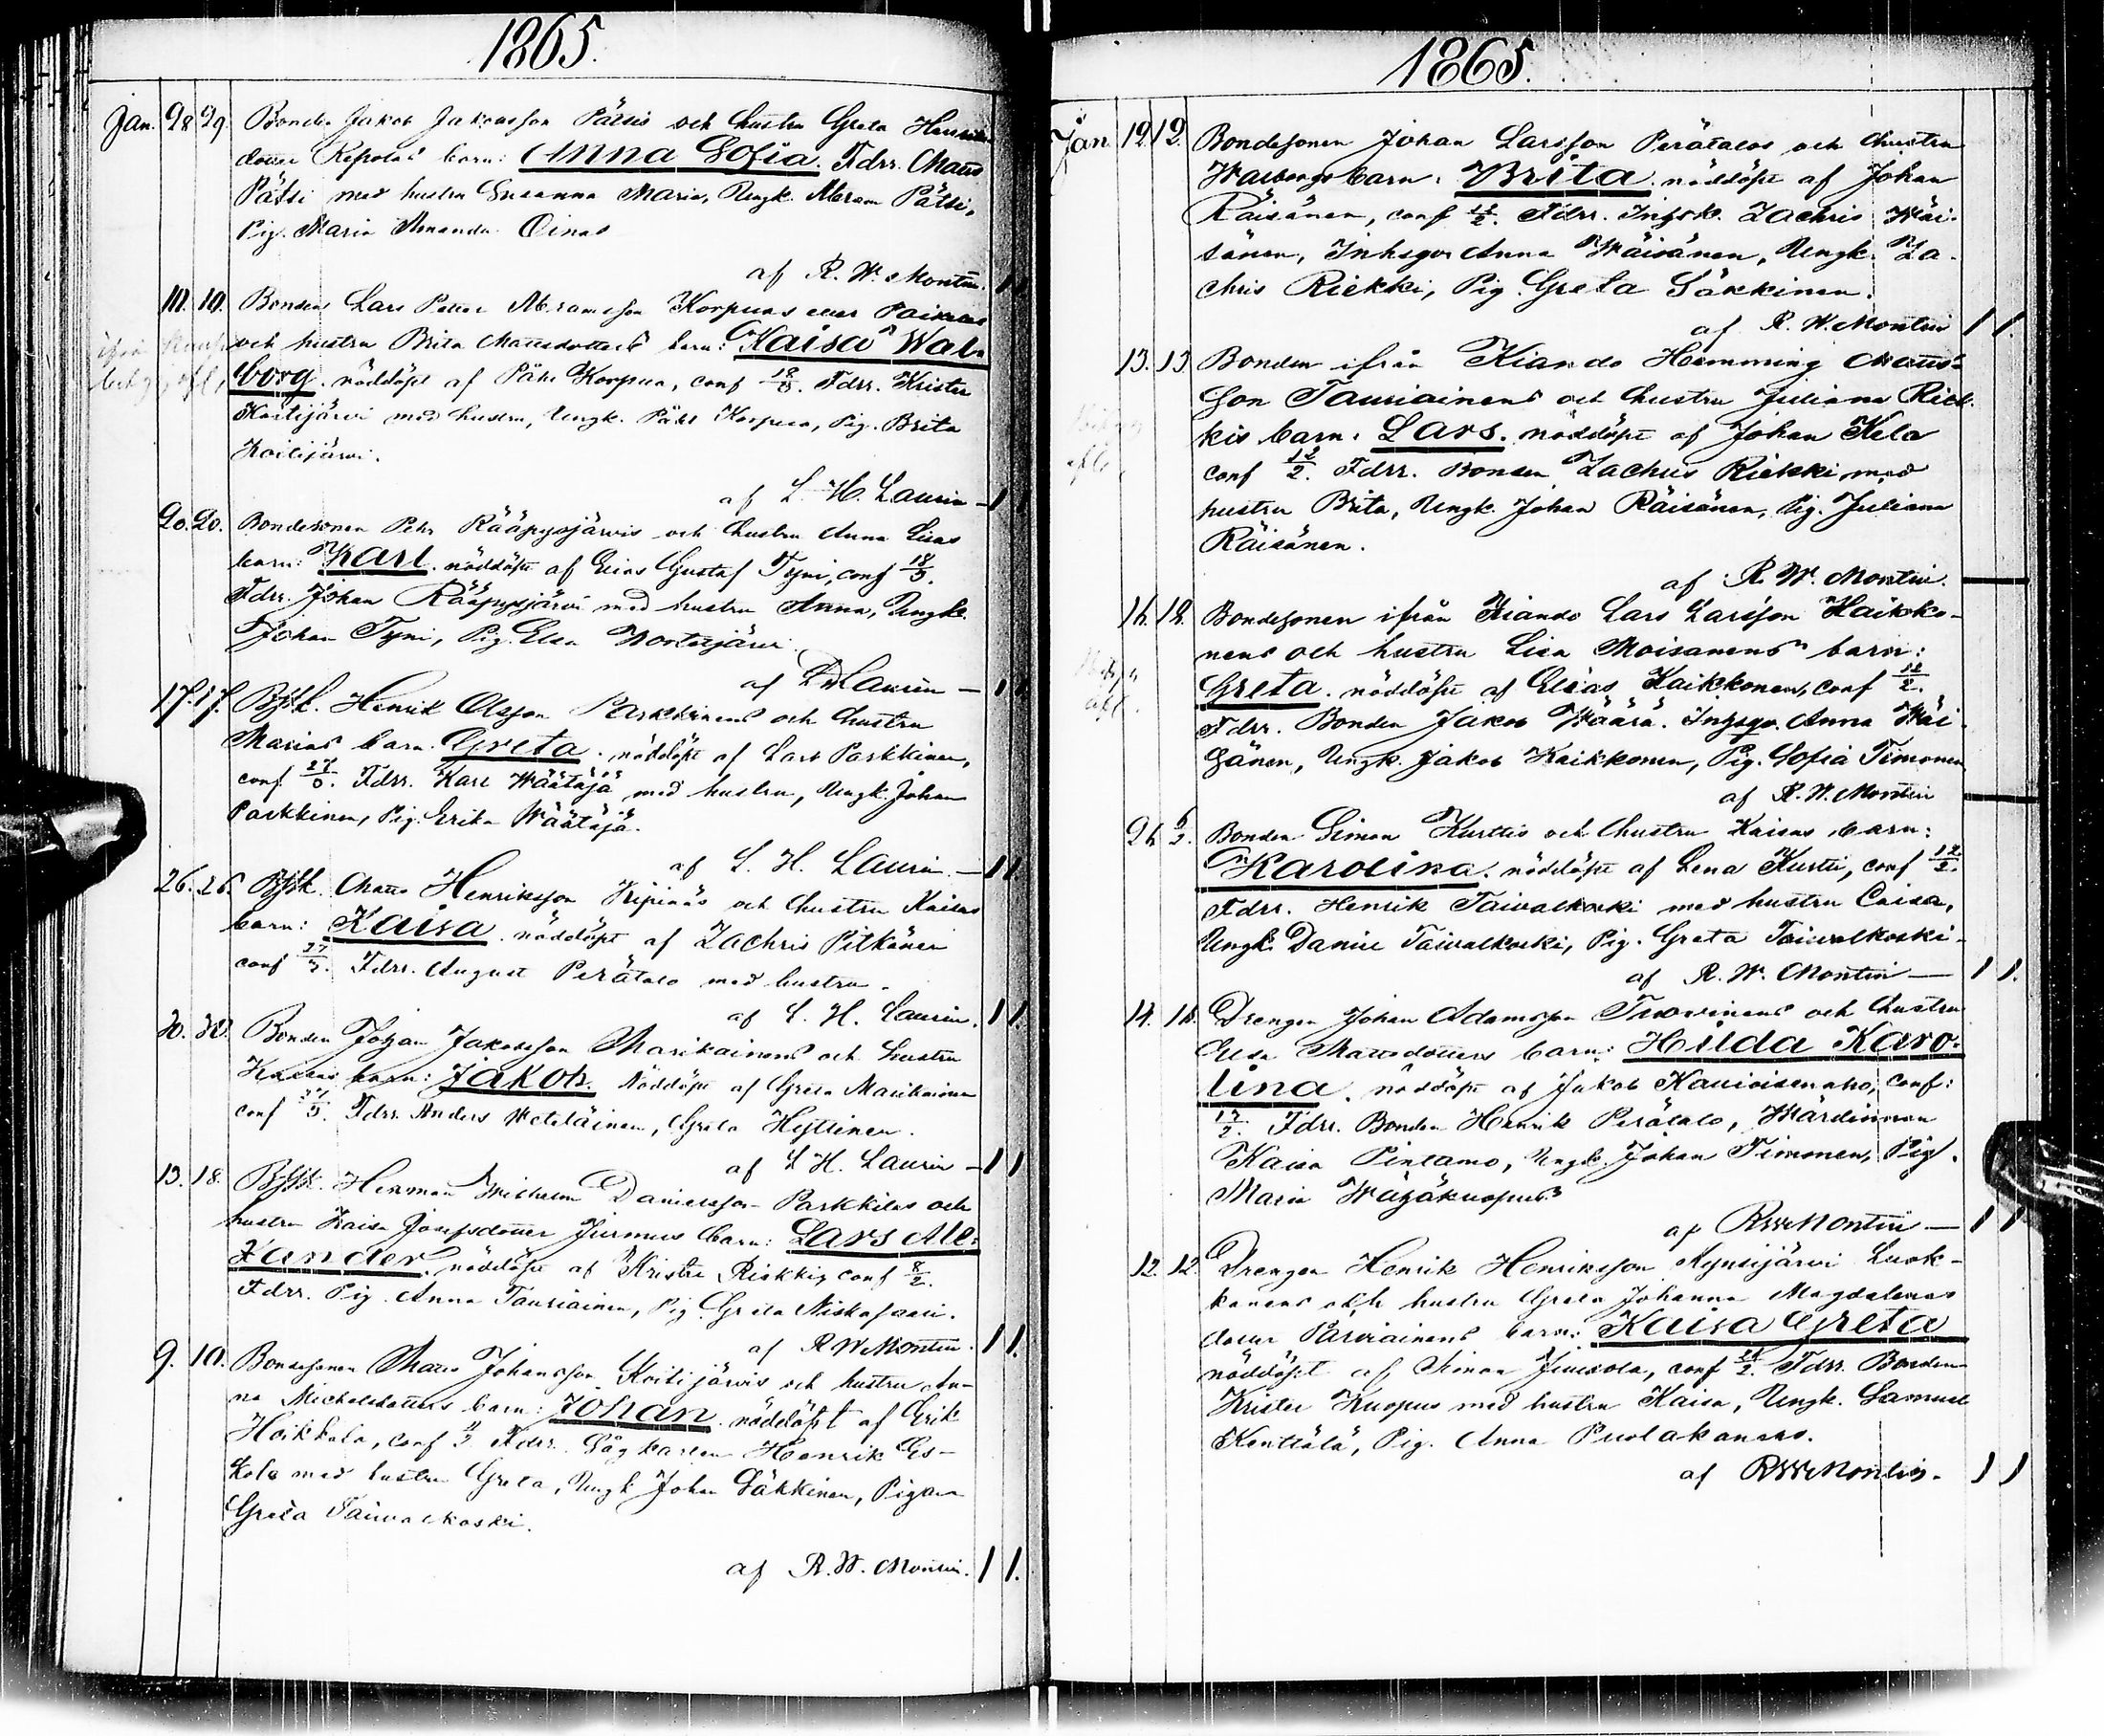 1865.
Jan. 28 29. Bonden Jakob Jakobsson Pätsis och hustru Greta Henriks
dotter Repolas barn: Anna Sofia. Fdrr. Matts
Pätsi med hustru Susanna Maria, Yngk. Abram Pätsi,
Pig. Maria Amanda Oinas
af R. W. Montin. 1 1
10. 10. Bonden Lars Petter Abramsson Korpuas eller
och hustru Brita Mattsdotters barn: Kaisa Wal-
borg. nöddöpt af Pähr Korpua, conf. Fdrr. Krister
Koitijärvi med hustru, Yngk. Pähr Korpua, Pig. Brita
Koitijärvi.
af L. H. Laurin — 1 1
20. 20. Bondesonen Pehr Rääpysjärvis och hustru Anna Lisas
barn: Karl. nöddöpt af Elias Gustaf Tyni, conf 18/3.
Fdrr. Johan Rääpysjärvi med hustru Anna, Yngk.
Johan Tyni, Pig. Elsa
af L H Laurin — 1 1
17. 17. Bysk. Henrik Olsson Parkkinens och hustru
Marias barn. Greta. nöddöpt af Lars Parkkinen,
conf 27/3. Fdrr. Karl Wäätäjä med hustru, Yngk. Johan
Parkkinen, Pig. Erika Wäätäjä.
af L. H. Laurin. — 1 1
26. 26. Bysk. Matts Henriksson Kipinäs och hustru Kaisas
barn: Kaisa. nöddöpt af Zachris Pitkänen
conf 27/3. Fdrr. August Perätalo med hustru.
af L. H. Laurin. 1 1.
30. 30. Bonden Johan Jakobsson Marikainens och hustru
Kaisas barn: Jakob. Nöddöpt af Greta Marikainen
conf 27/3. Fdrr. Anders Weteläinen, Greta Hyttinen.
af L H. Laurin — 1 1
13. 18. Bysk. Herman Wilhelm Danielsson Parkkilas och
hustru Kaisa Josefsdotter Jurmus barn: Lars Ale-
xander. nöddöpt af Krister Riekki, conf 8/2.
Fdrr. Pig. Anna Tauriainen, Pig. Greta Niskasaari.
af R W Montin. 1 1.
9. 10. Bondesonen Matts Johansson Koitijärvis och hustru An-
na Michelsdotters barn: Johan. nöddöpt af Erik
Hoikkala, conf. Fdrr. Sågkarlen Henrik Es-
kola med hustru Greta, Yngk. Johan Säkkinen, Pigan
Greta Taivalkoski.
af R. W. Montin. 1 1.
1865.
Jan 12 12. Bondesonen Johan Larsson Perätalos och hustru
Walborgs barn: Brita. nöddöpt af Johan
Räisänen, conf 12/2. Fdrr. Inhysk. Zachris Wäi-
sänen, Inhysqv. Anna Wäisänen, Yngk. Za-
chris Riekki, Pig. Greta Säkkinen.
af R. W. Montin 1 1.
13. 13. Bonden ifrån Kiando Hemming Matts-
son Tauriainens och hustru Juliana Riek-
kis barn: Lars. nöddöpt af Johan Kela
conf 12/2. Fdrr. Bonden Zachris Riekki med
hustru Brita, Yngk. Johan Räisänen, Pig. Juliana
Räisänen.
af R. W. Montin. —
16. 18. Bondesonen ifrån Kiando Lars Larsson Kaikko-
nens och hustru Lisa Moisanens barn:
Greta. nöddöpt af Elias Kaikkonen, conf 12/2.
Fdrr. Bonden Jakob Wäärä. Inhysqv. Anna Wäi-
sänen, Yngk. Jakob Kaikkonen, Pig. Sofia Timonen
af R. W. Montin —
24 6/2. Bonden Simon Kurttis och hustru Kaisas barn:
Karolina. nöddöpt af Lena Kurtti, conf 12/2.
Fdrr. Henrik Taivalkoski med hustru Caisa,
Yngk. Daniel Taivalkoski, Pig. Greta Taivalkoski.
af R. W. Montin — 1 1.
14. 14. Drengen Johan Adamsson Tuovinens och hustru
Elsa Mattsdotters barn: Hilda Karo-
lina. nöddöpt af Jakob Kauvoisenaho, conf:
12/2. Fdrr. Bonden Henrik Perätalo, Wärdinnan
Kaisa Pintamo, Yngk. Johan Timonen, Pig.
Maria
af R W Montin — 1 1
12. 12. Drengen Henrik Henriksson Kynsijärvi Luok-
kanens och hustru Greta Johanna Magdalenas
dotter Pärviäinens barn: Kaisa Greta
nöddöpt af Simon, conf. Fdrr. Bonden
Krister Kuopus med hustru Kaisa, Yngk. Samuel
Kenttälä, Pig. Anna Puolakanaho.
af R W Montin. 1 1